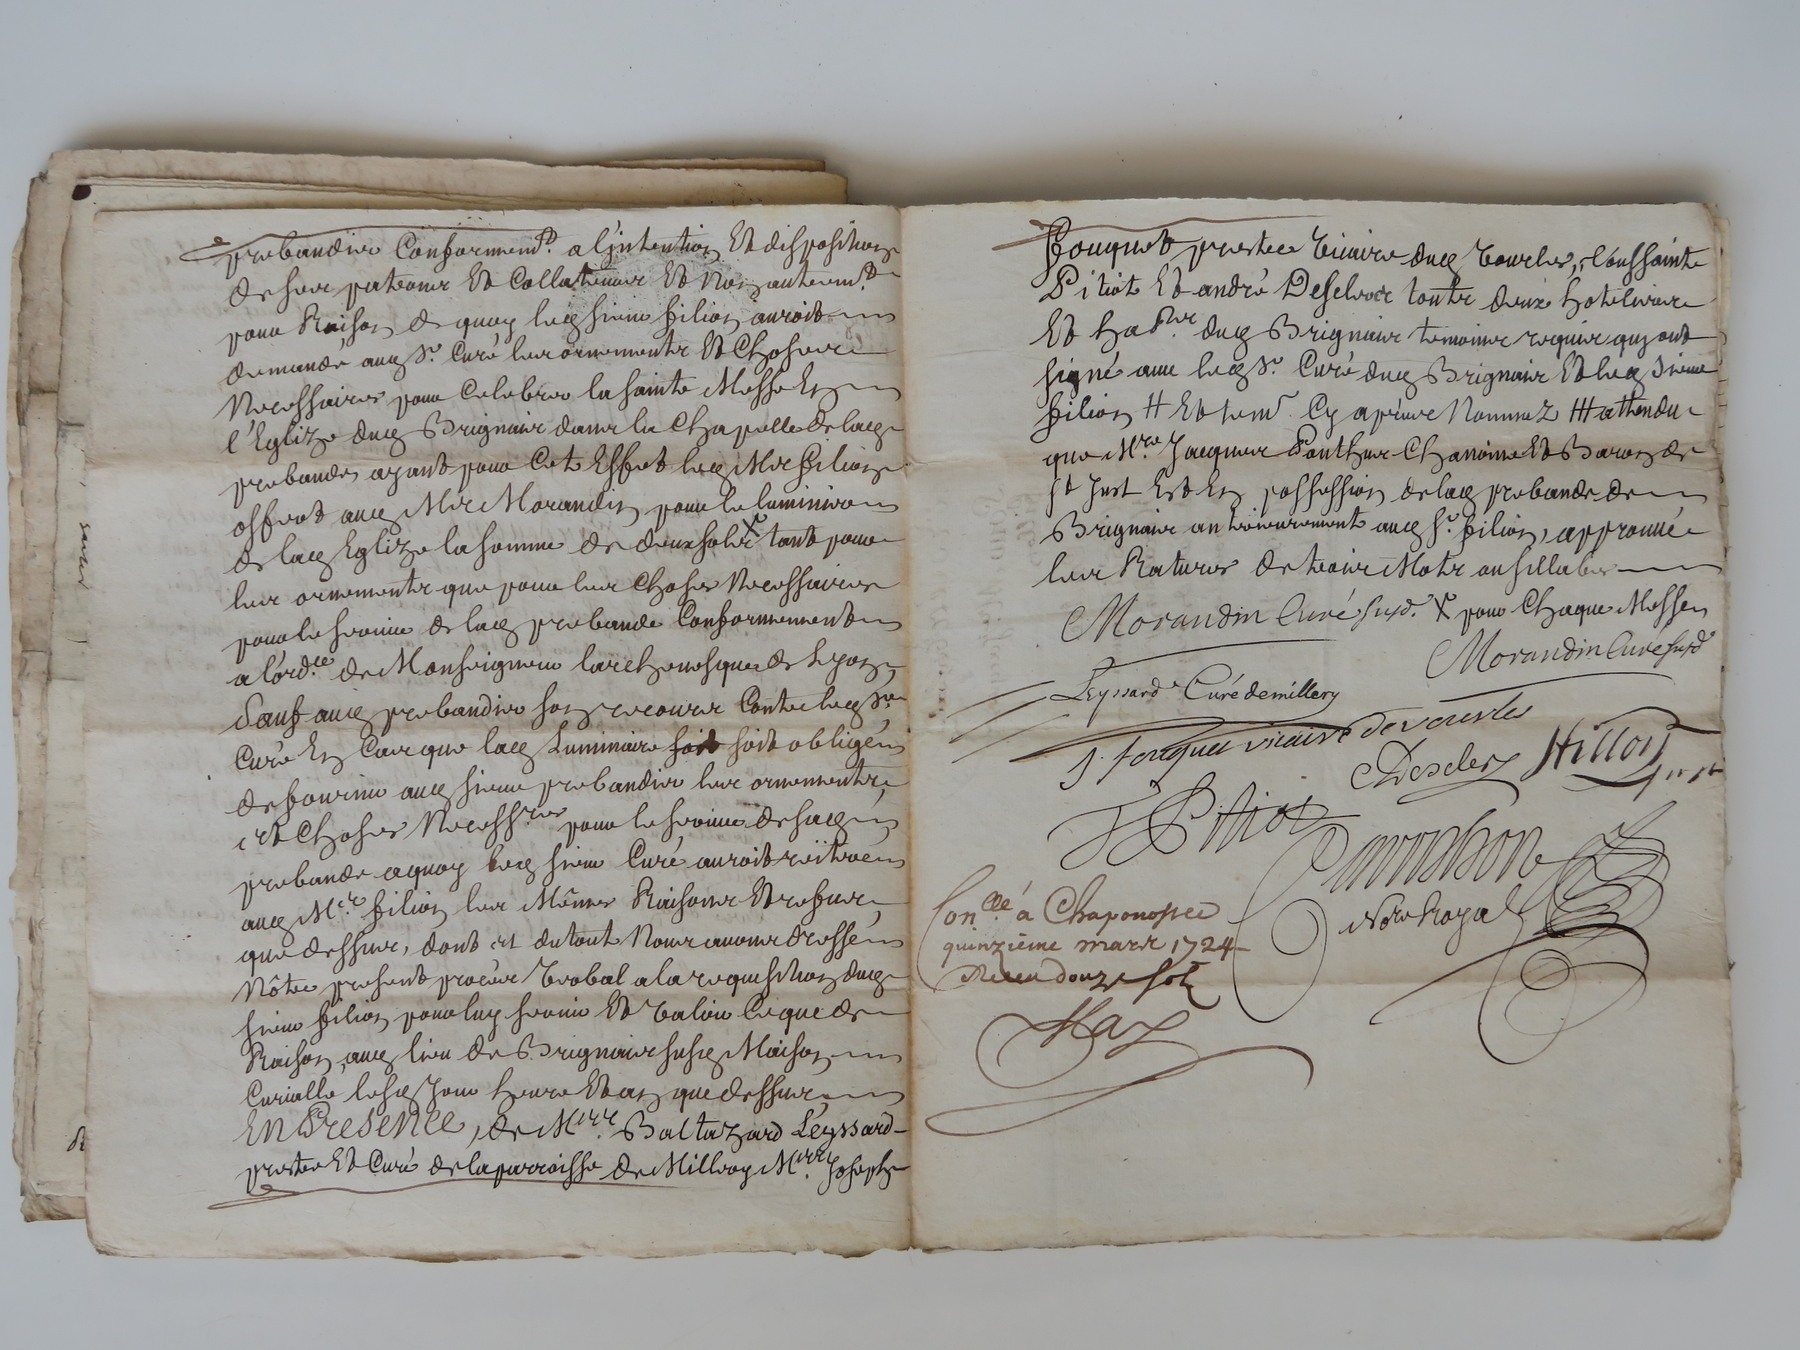 prebandier Conformemt. a l'jntention Et disposition
de ses patrons Et Collateurs Et Non autremt.
pour Raison de quoy led sieur filion auroit
demandé aud Sr. Curé les ornements Et Choses
Necessaires pour Celebrer la sainte Messe En
l'Eglize dud Brignais dans la Chapelle de lad
prebande, ayant pour Cet Effet led Mre filion
offert aud Mre Morandin pour le luminire
de lad Eglize la somme de deux sols X tant pour
les ornements que pour les Choses Necessaires
pour le service de lad prebande Conformement
a l'ord.ce de Monseigneur l'archevesque de Lyon,
Sauf aud prebandier son recours Contre led Sr
Curé En Cas que lad Luminaire soit soit obligée
de fournir aud sieur prebandier les ornements,
et Choses Necessres pour le service de sad
prebande a quoy led sieur Curé auroit reïteré
aud Mre. filion les Mêmes Raisons Et refus
que dessus, dont et du tout Nous avons dressé
Nôtre present procés Verbal a la requisition dud
sieur filion pour luy servir Et Valoir Ce que de
Raison, aud lieu de Brignais susd Maison
Curialle lesd Jour heure Et an que dessus,
EN PreseNce, de Mrre. Baltazard Leyssard
prestre Et Curé de la parroisse de Millery Mrre. Joseph
Fouquet prestre Vicaire dud Vourles, toussainte
Pitiot Et andré Descleser touts deux hotelliers
Et habts. dud Brignais temoins requis qui ont
signé avec led Sr. Curé dud Brignais Et led Sieur
filion # Et temr. Cy aprés Nommez ## attendu
que Mre. Jacques Ponthus Chanoine Et Baron de
st Just Est En possession de lad prebande de
Brignais anterieurement aud sr. filion, approuvé
les Ratures de trois Mots ou sillabes
Morandin Curé susd. X pour Chaque Messe
Morandin Curé susd
Leyssard Curé de millery
J. fouquet vicaire de vourles
Descler
fillon
Pitiot
Notre Royal
Con.llé a Chaponost le
quinzième mars 1724
Receu douze sols